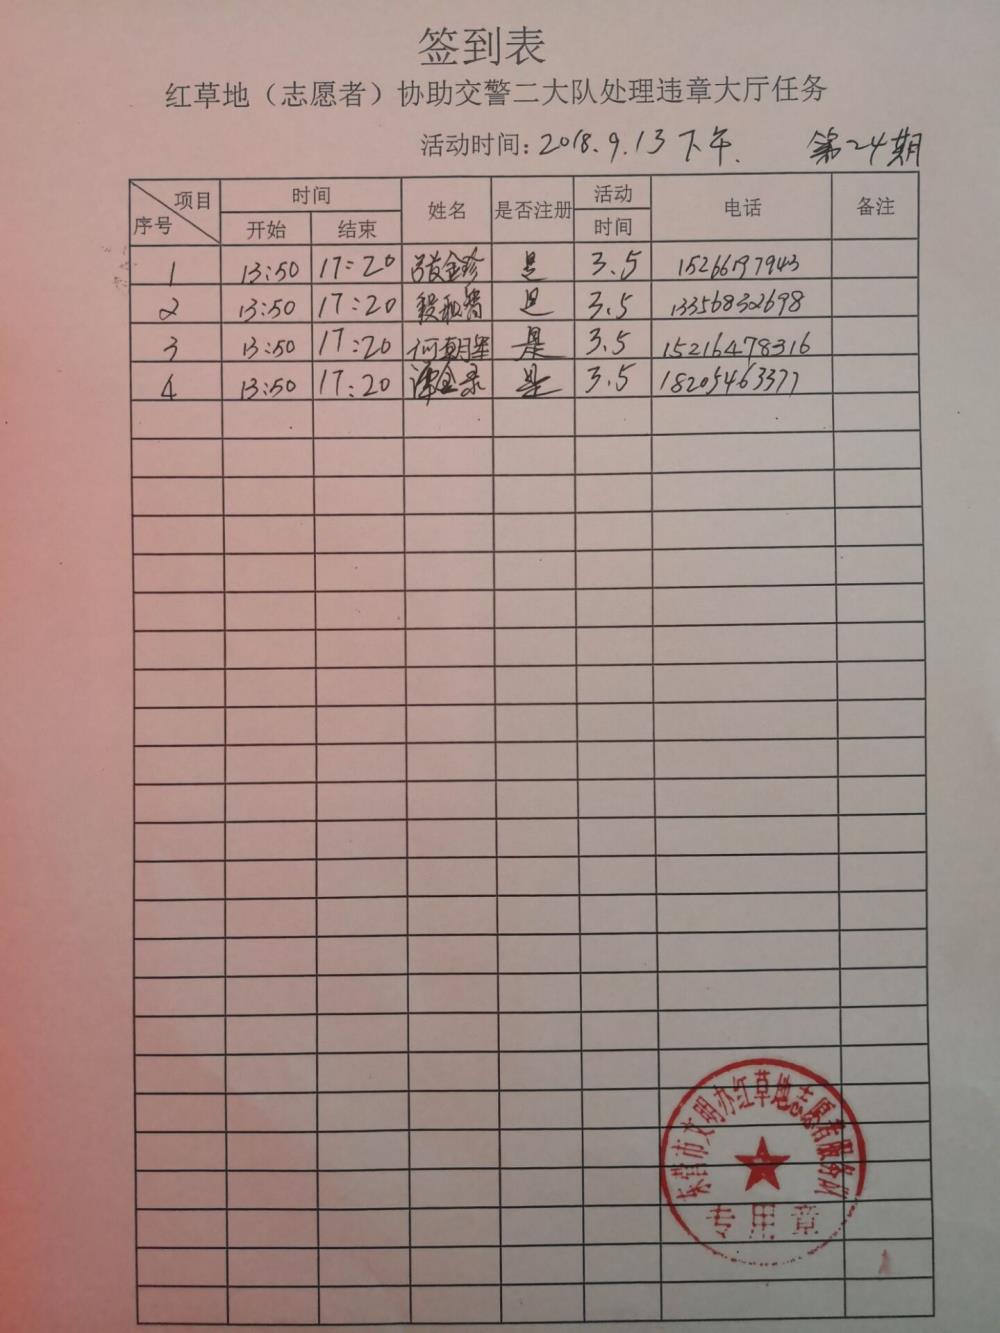 签到表
红草地（志愿者）协助交警二大队处理违章大厅任务
活动时间：2018.9.13下午. 第24期
项目 时间 姓名 是否注册 活动 电话 备注
序号 开始 结束 时间
1 13:50 17:20 金珍 是 3.5 15266197943
2 13:50 17:20 是 3.5 13356832698
3 13:50 17:20 何朝 是 3.5 15216478316
4 13:50 17:20 谭金录 是 3.5 18205463377
东营市文明办红草地志愿者服务队
专用章